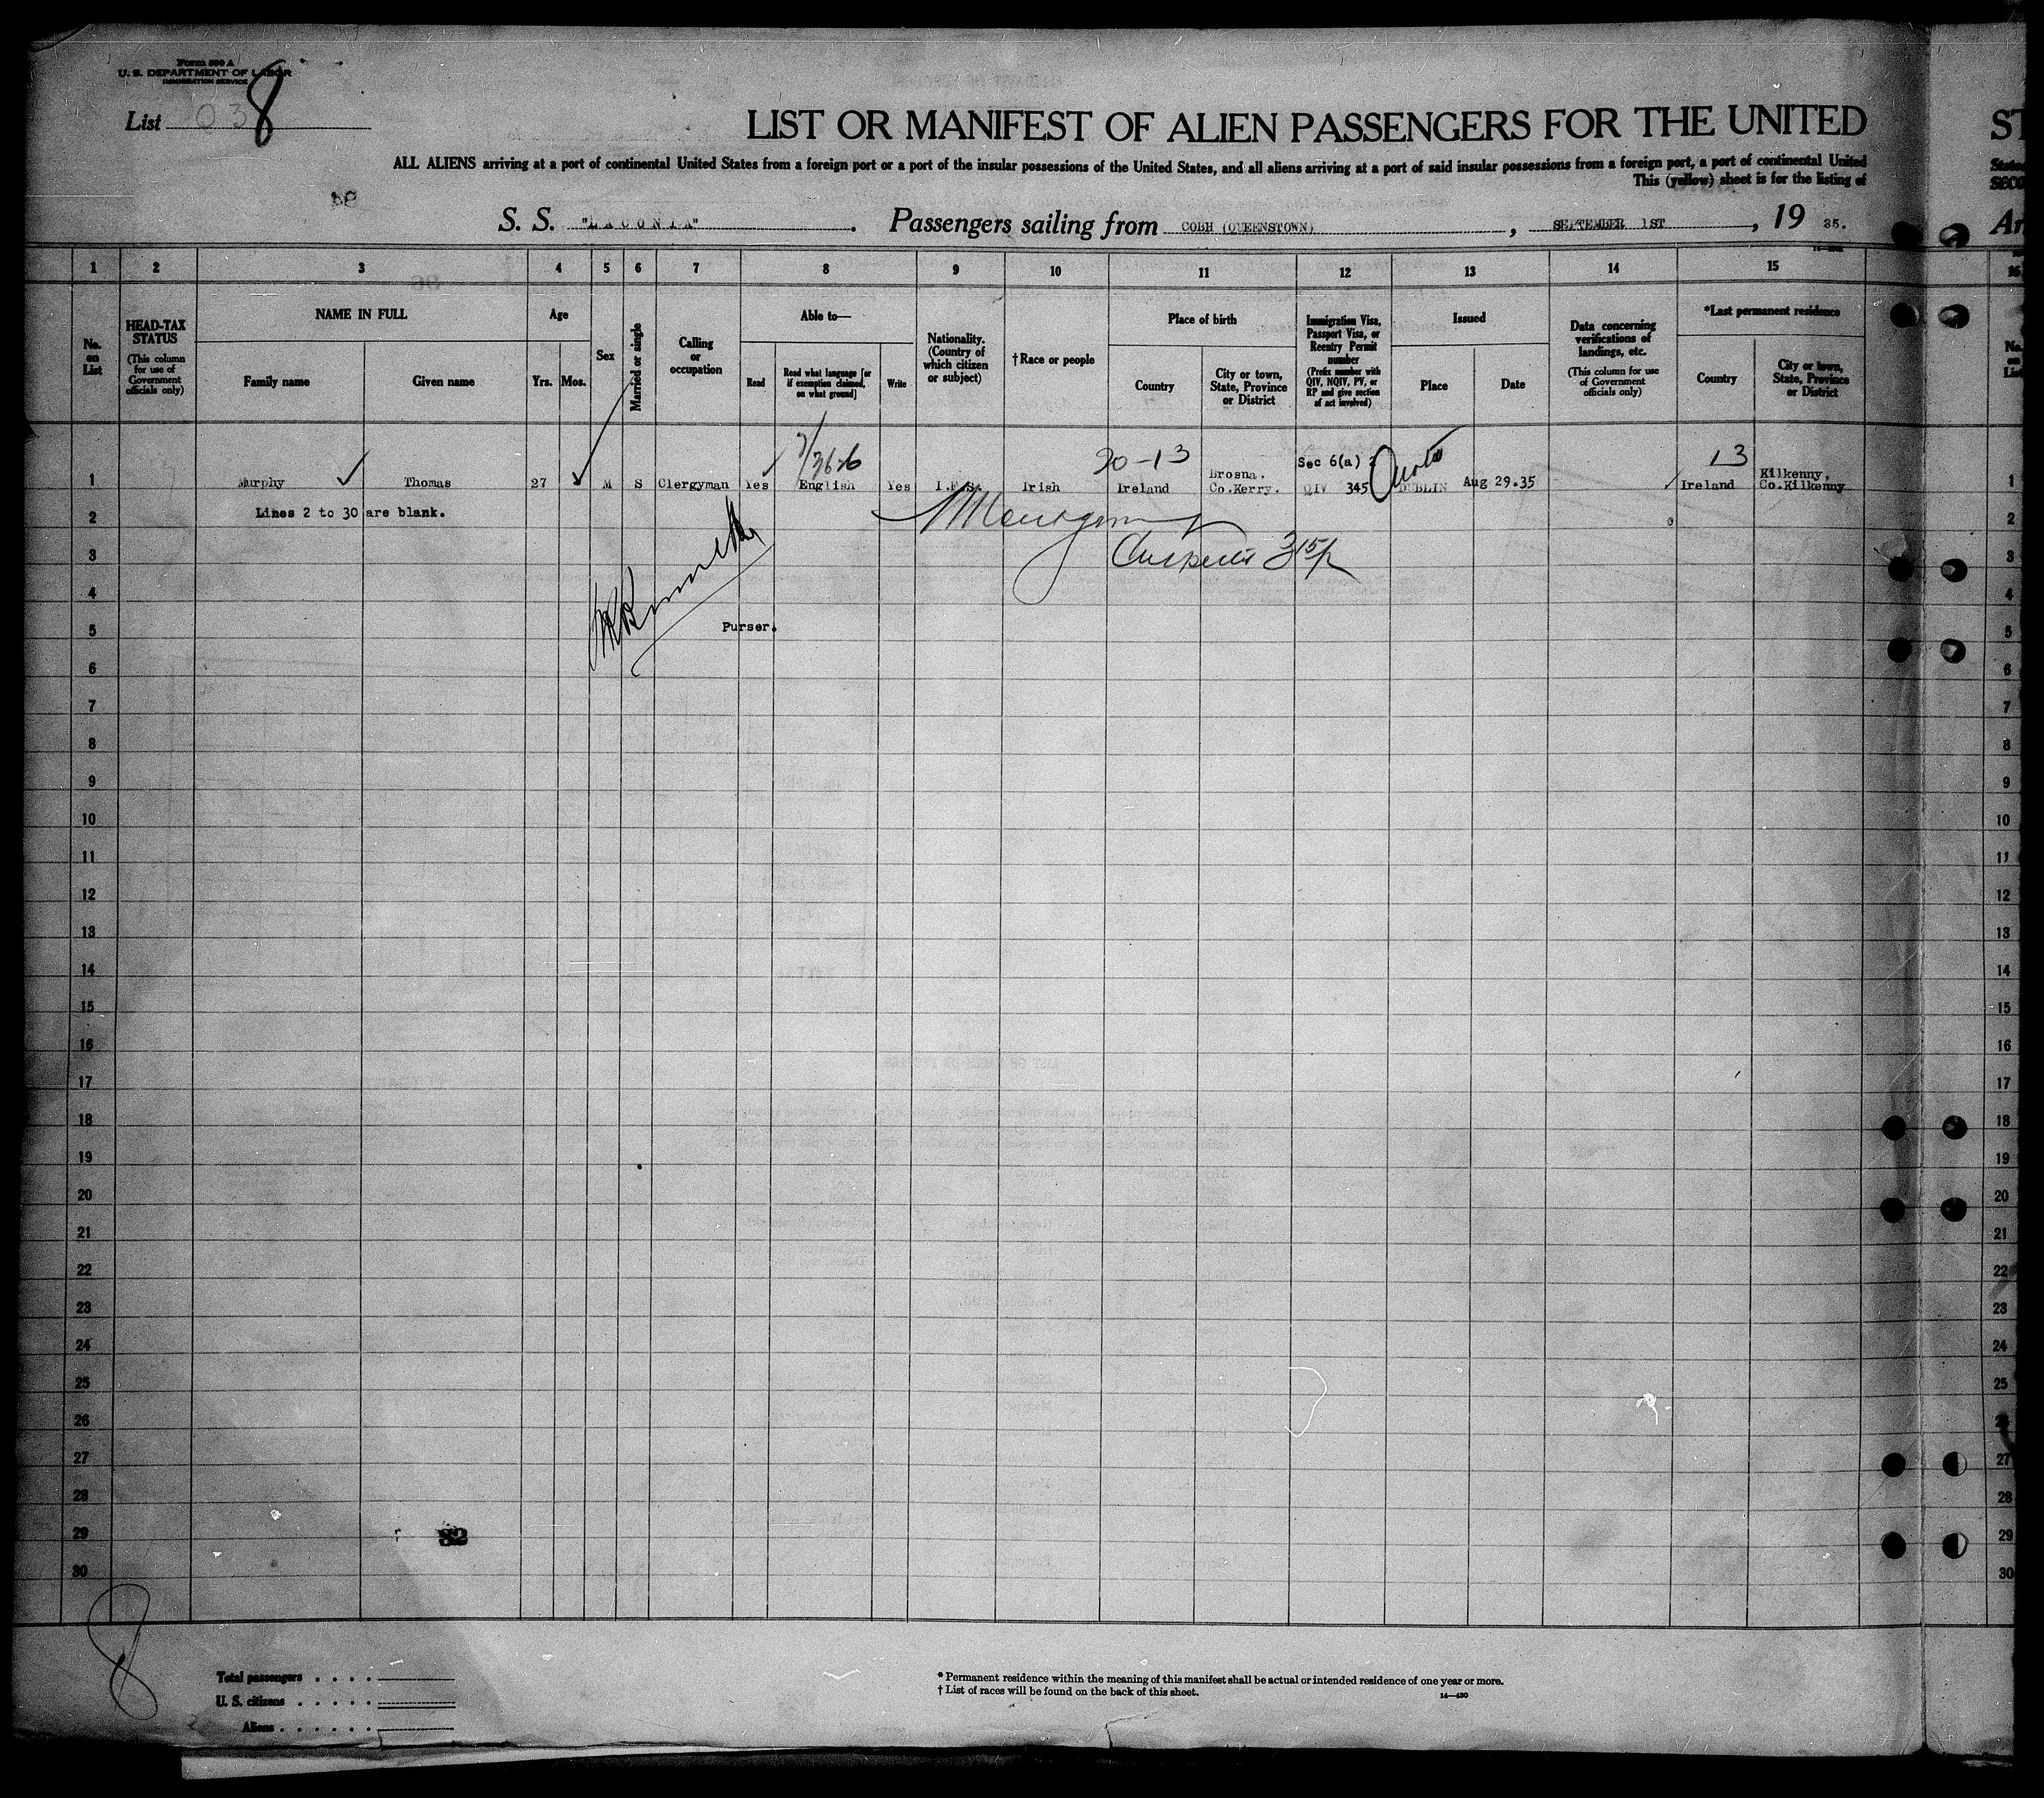 Form 500 A
U. S. DEPARTMENT OF LABOR
IMMIGRATION SERVICE
List 038
LIST OR MANIFEST OF ALIEN PASSENGERS FOR THE UNITED
ST
ALL ALIENS arriving at a port of continental United States from a foreign port or a port of the insular possessions of the United States, and all aliens arriving at a port of said insular possessions from a foreign port, a port of continental United
This (yellow) sheet is for the listing of
States
SECO
S. S. "LACONIA". Passengers sailing from COBH (QUEENSTOWN), SEPTEMBER 1ST, 19 35.
Ar
1 2 3 4 5 6 7 8 9 10 11 12 13 14 15 16
No. on List
HEAD-TAX STATUS
(This column for use of Government officials only)
NAME IN FULL
Family name
Given name
Age
Yrs.
Mos.
Sex
Married or single
Calling or occupation
Able to—
Read
Read what language [or if exemption claimed, on what ground]
Write
Nationality. (Country of which citizen or subject)
†Race or people
Place of birth
Country
City or town, State, Province or District
Immigration Visa, Passport Visa, or Reentry Permit number
(Prefix number with QIV, NQIV, PV, or RP and give section of act involved)
Issued
Place
Date
Data concerning verifications of landings, etc.
(This column for use of Government officials only)
*Last permanent residence
Country
City or town, State, Province or District
No. on List
20-13
Sec 6(a) 2
Quota
13
1 Murphy Thomas 27 M S Clergyman Yes English Yes I.F.S. Irish Ireland Brosna, Co.Kerry. QIV 345 DUBLIN Aug 29.35 Ireland Kilkenny, Co.Kilkenny 1
2 Lines 2 to 30 are blank. 2
3 3
4 4
5 Purser. 5
6 6
7 7
8 8
9 9
10 10
11 11
12 12
13 13
14 14
15 15
16 16
17 17
18 18
19 19
20 20
21 21
22 22
23 23
24 24
25 25
26 26
27 27
28 28
29 82 29
30 30
8
Total passengers . . . .
U. S. citizens . . . . .
Aliens . . . . . .
* Permanent residence within the meaning of this manifest shall be actual or intended residence of one year or more.
† List of races will be found on the back of this sheet.
14—430